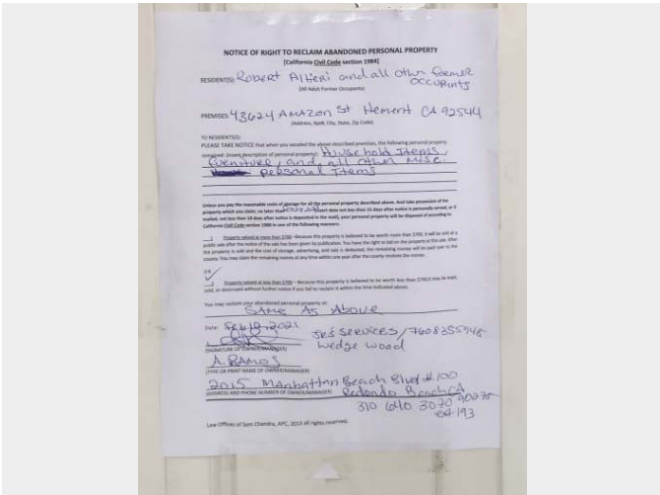 NOTICE OF RIGHT TO RECLAIM ABANDONED PERSONAL PROPERTY
[California Civil Code section 1984]
RESIDENT(S): Robert Alfieri and all other former
occupants
(All Adult Former Occupants)
PREMISES: 43624 Amazon St Hement CA 92544
(Address, Apt#, City, State, Zip Code)
TO RESIDENT(S):
PLEASE TAKE NOTICE that when you vacated the above-described premises, the following personal property
remained: (insert description of personal property) Household Items,
furniture, and all other misc.
personal Items
Unless you pay the reasonable costs of storage for all the personal property described above. And take possession of the
property which you claim, no later than (insert date not less than 15 days after notice is personally served, or if
mailed, not less than 18 days after notice is deposited in the mail), your personal property will be disposed of according to
California Civil Code section 1988 in one of the following manners:
1 Property valued at more than $700 –Because this property is believed to be worth more than $700, it will be sold at a
public sale after the notice of the sale has been given by publication. You have the right to bid on the property at this sale. After
the property is sold and the cost of storage, advertising, and sale is deducted, the remaining money will be paid over to the
county. You may claim the remaining money at any time within one year after the county receives the money.
OR
2 Property valued at less than $700 – Because this property is believed to be worth less than $700, it may be kept,
sold, or destroyed without further notice if you fail to reclaim it within the time indicated above.
You may reclaim your abandoned personal property at:
Same As Above
Date: 2021
SRS Services / 7608355948
(SIGNATURE OF OWNER/MANAGER) Wedge wood
A. Ramos
(TYPE OR PRINT NAME OF OWNER/MANAGER)
2015 Manhattan Beach Blvd # 100
(ADDRESS AND PHONE NUMBER OF OWNER/MANAGER) Redondo Beach CA
90278
310 640 3070
ext 193
Law Offices of Sam Chandra, APC, 2013 all rights reserved.